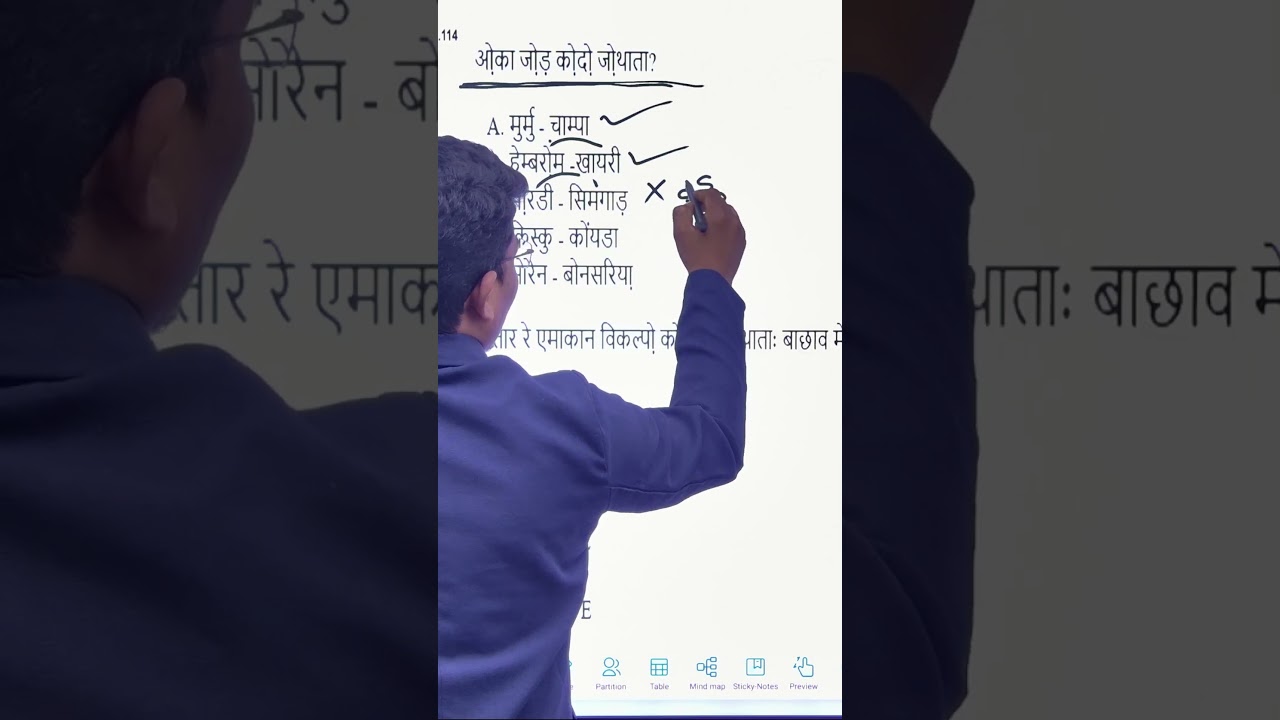 .114
ओ़का जो़ड़ को़दो़ जो़थाता?
A. मुर्मु - चा़म्पा
हेम्बरोम - खायरी
X
- सिमंगाड़
किस्कु - कोंयडा
- बोनसरिया़
रे एमाकान विकल्पो़ बाछाव
E
Partition Table Mind map Sticky-Notes Preview